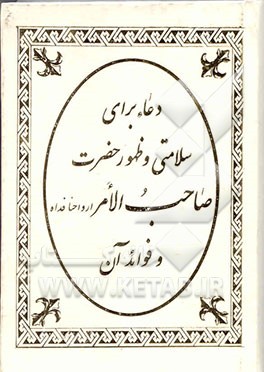 دعاء برای
سلامتی و ظهور حضرت
صاحب الأمر ارواحنا فداه
و فوائد آن
WWW.KETAB.IR